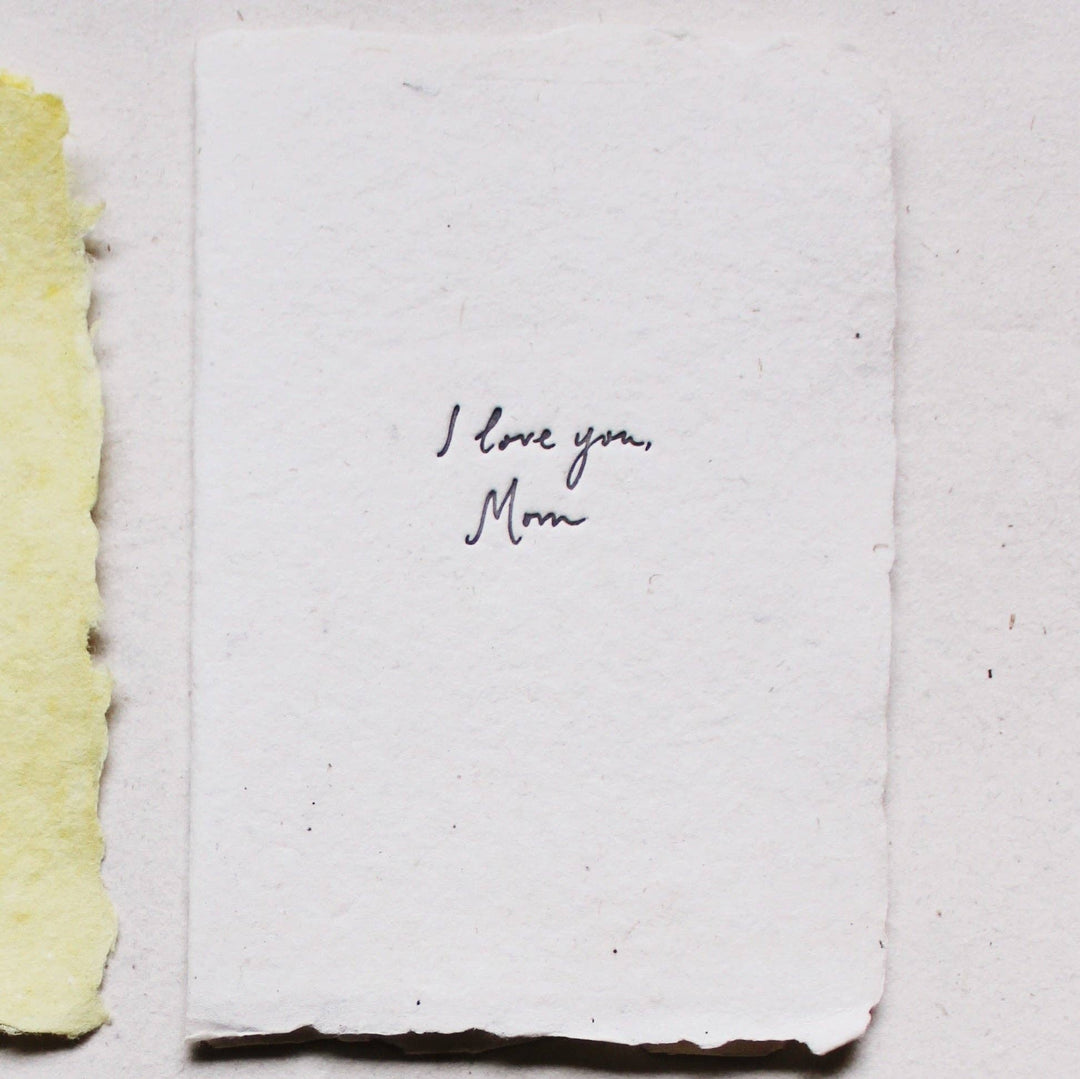 I love you,
Mom